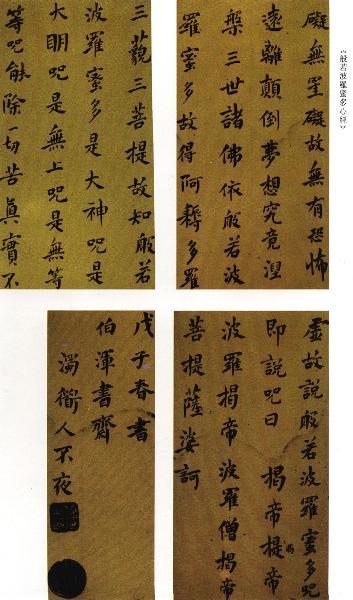 《般若波羅蜜多心經》
礙無罣礙故無有恐怖
遠離顛倒夢想究竟涅
槃三世諸佛依般若波
羅蜜多故得阿耨多羅
三藐三菩提故知般若
波羅蜜多是大神呪是
大明呪是無上呪是無等
等呪能除一切苦真實不
虛故說般若波羅蜜多呪
即說呪曰 揭帝提帝
波羅揭帝波羅僧揭帝
菩提薩婆訶
戊子春書
伯渾書齋
人不夜